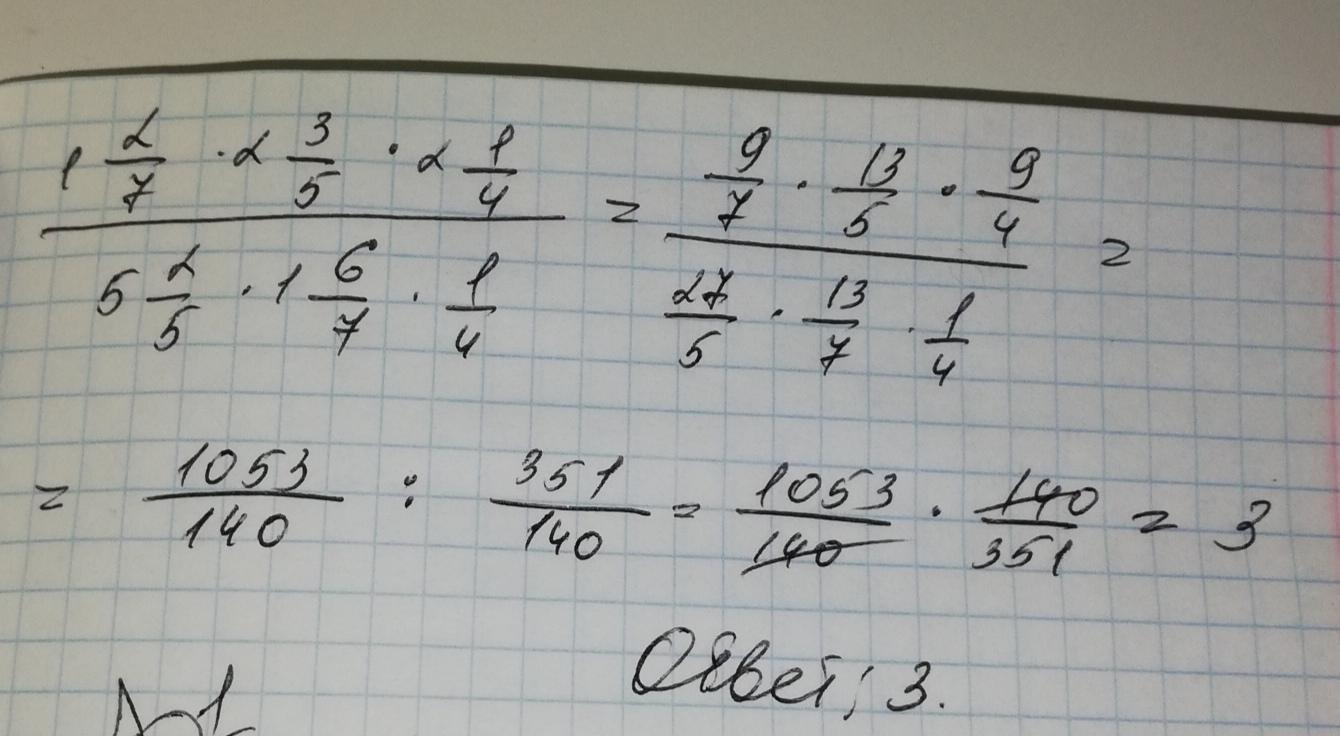 1 2/7 · 2 3/5 · 2 1/4 / 5 2/5 · 1 6/7 · 1/4 = 9/7 · 13/5 · 9/4 / 27/5 · 13/7 · 1/4 =
= 1053/140 : 351/140 = 1053/140 · 140/351 = 3
Ответ; 3.